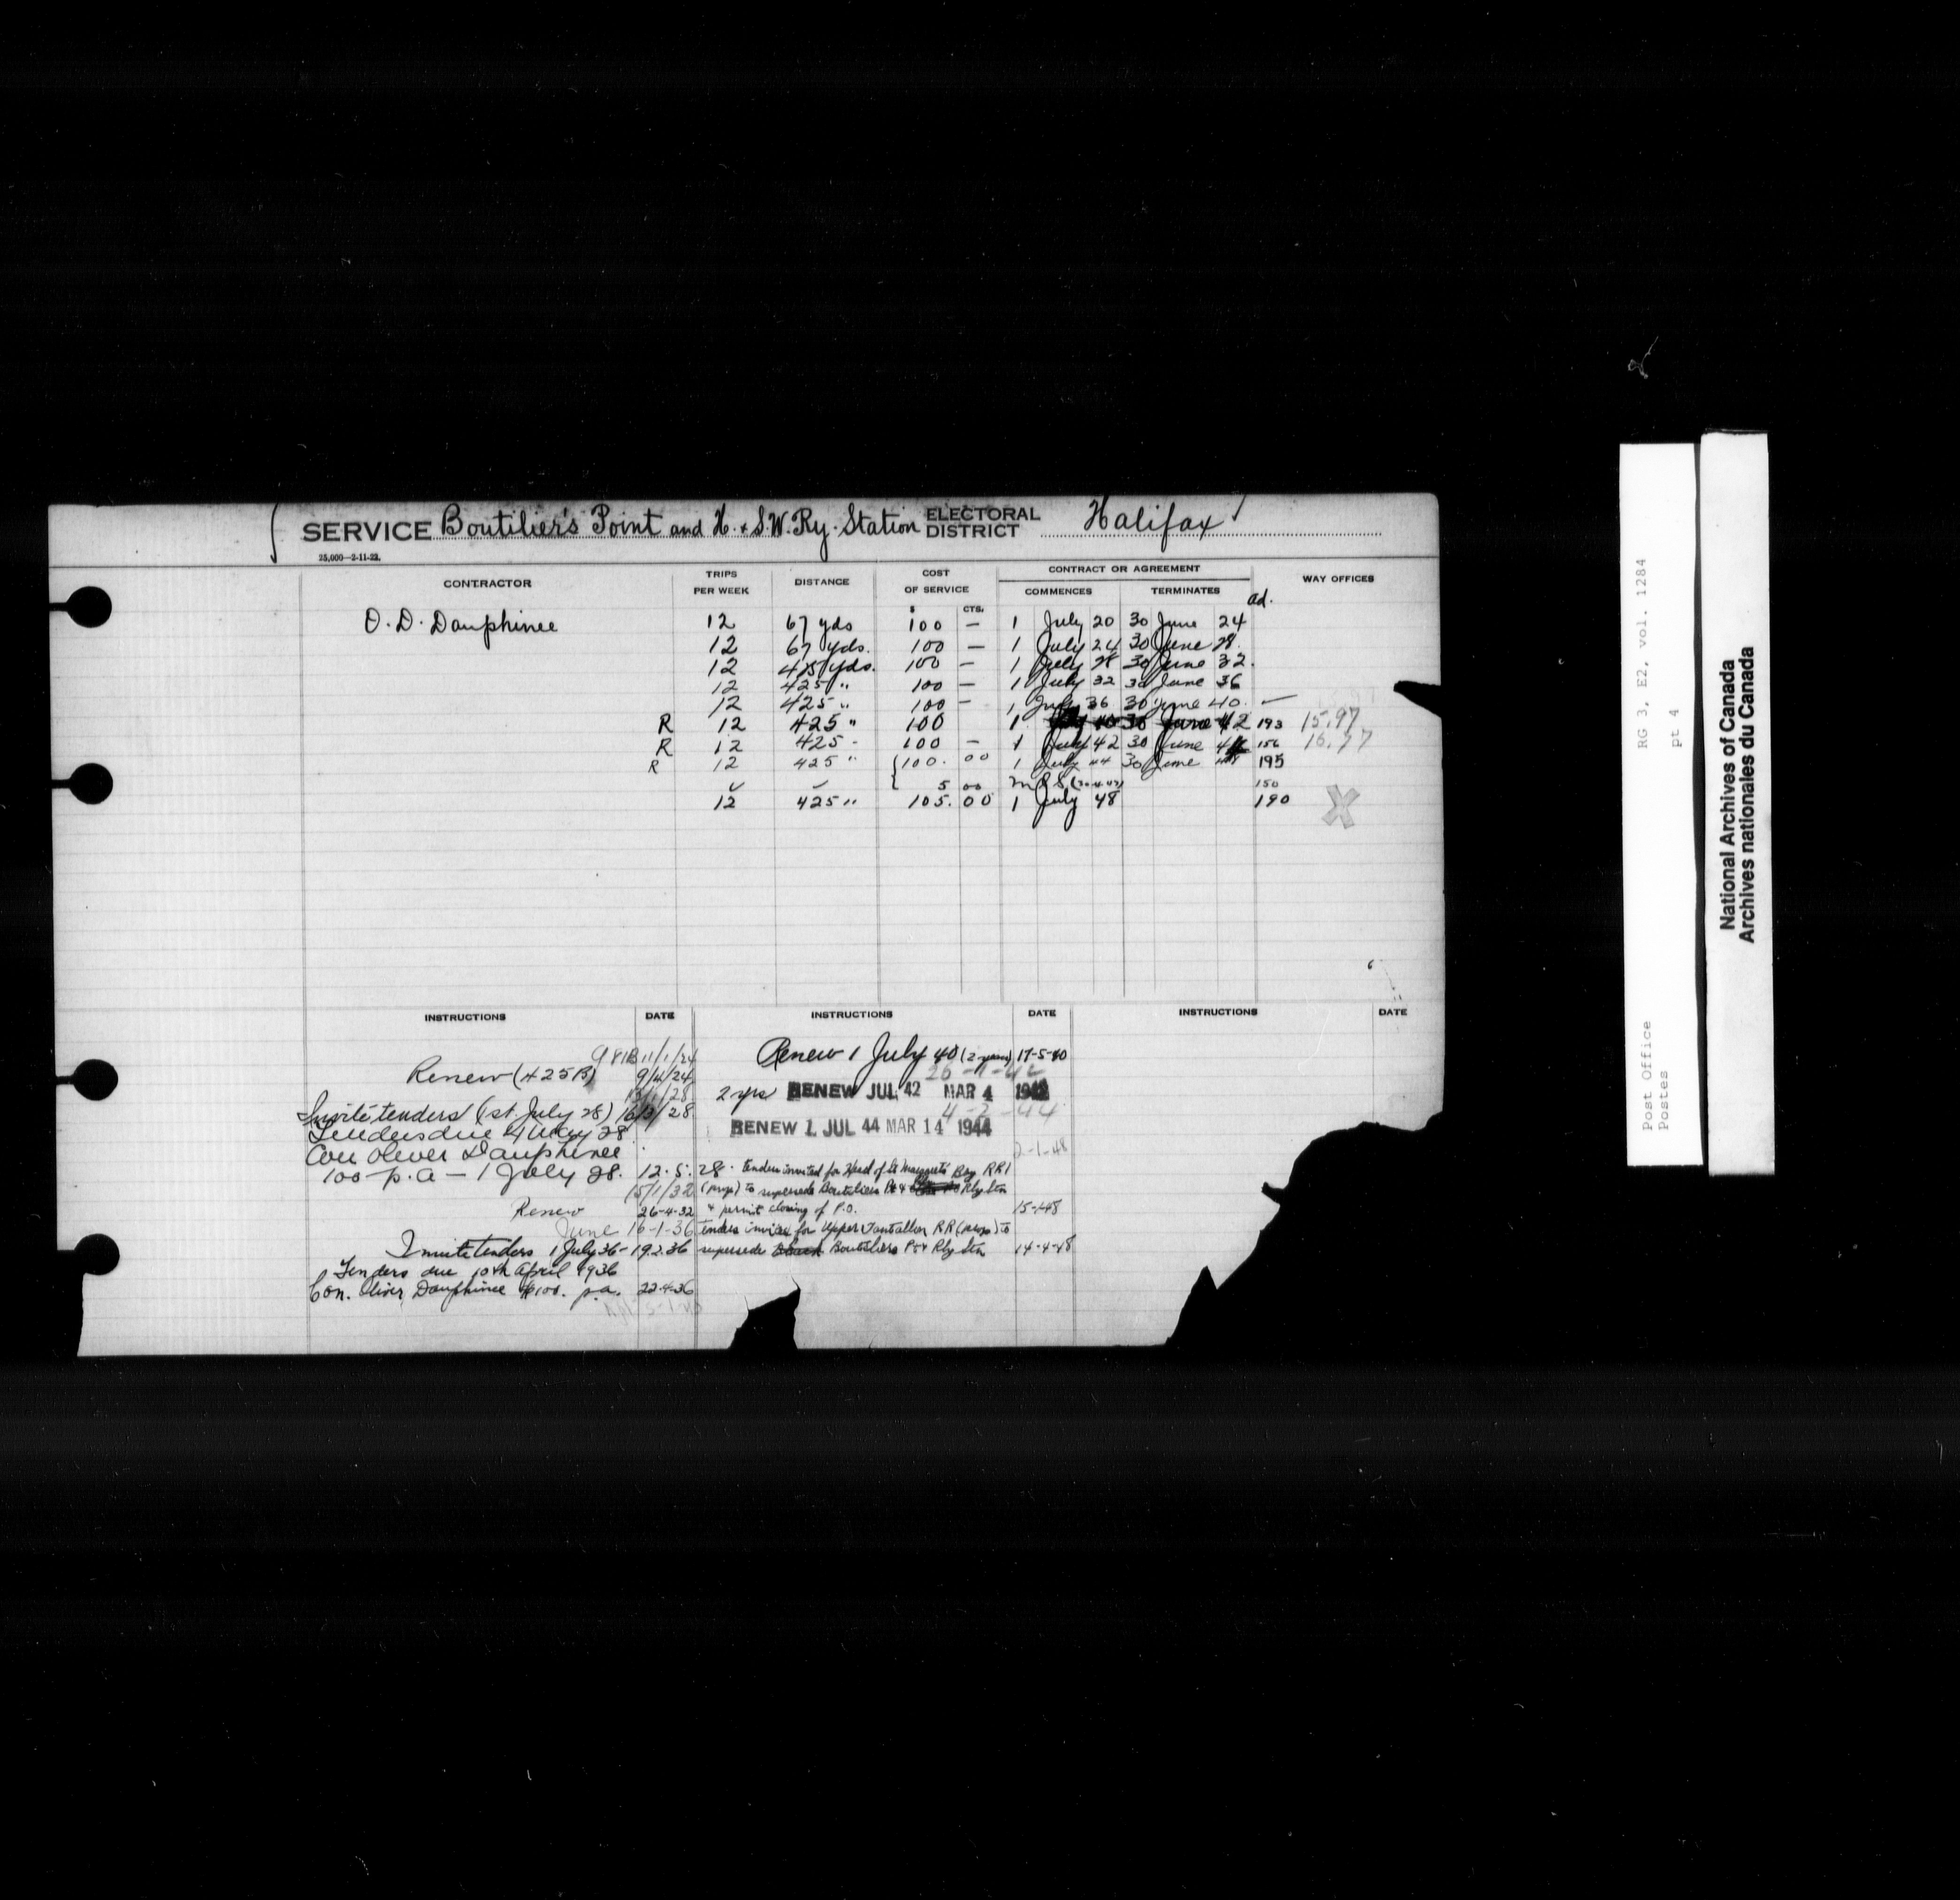 SERVICE Boutilier's Point and H. & S.W. Ry. Station ELECTORAL DISTRICT Halifax
25,000—2-11-22.
CONTRACTOR TRIPS PER WEEK DISTANCE COST OF SERVICE CONTRACT OR AGREEMENT WAY OFFICES
COMMENCES TERMINATES ad.
$ CTS.
O. D. Dauphinee 12 67 yds 100 — 1 July 20 30 June 24
12 67 yds. 100 — 1 July 24 30 June 28.
12 425 yds. 100 — 1 July 28 30 June 32.
12 425 " 100 — 1 July 32 30 June 36
12 425 " 100 — 1 July 36 30 June 40. —
R 12 425 " 100 1 July 40 30 June 42 193 15.97
R 12 425 - 100 — 1 July 42 30 June 44 156 16.77
R 12 425 " 100. 00 1 July 44 30 June 48 195
5 00 150
12 425 " 105. 00 1 July 48 190
X
INSTRUCTIONS DATE INSTRUCTIONS DATE INSTRUCTIONS DATE
981B 11/1/24
Renew (425B) 9/4/24
13/1/28
Invite tenders (1st July 28) 16/3/28
Tenders due 4 May 28
Con Oliver Dauphinee
100 - p.a — 1 July 28. 12. 5. 28.
15/1/32
Renew 26-4-32
June 16-1-36
Invite tenders 1 July 36 - 19.2.36
Tenders due 10th April 1936
Con. Oliver Dauphinee $100. p.a. 22-4-36
Renew 1 July 40 (2 years) 17-5-40
26-1-42
2 yrs RENEW JUL 42 MAR 4 1942
4-2-44
RENEW 1 JUL 44 MAR 14 1944
2-1-48
Tenders invited for Head of St Margarets Bay RR1
(prop) to supersede Boutiliers Pt & Rly Stn
& permit closing of P.O. 15-1-48
Tenders invited for Upper Tantallon RR (prop) to
supersede Boutiliers Pt & Rly Stn 14-4-48
Post Office RG 3, E2, vol. 1284
Postes pt 4
National Archives of Canada
Archives nationales du Canada